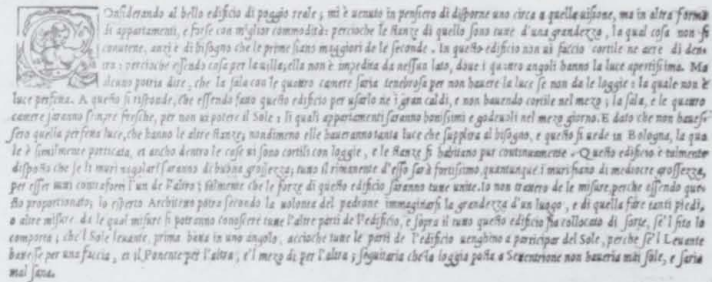 Considerando al bello edificio di poggio reale, mi è uenuto in pensiero di disporne uno circa a quella uisione, ma in altra forma
di appartamenti, e forse con miglior commodità: percioche le stanze di quello sono tutte d'una grandezza, la qual cosa non si
conuiene, anzi è di bisogno che le prime siano maggiori de le seconde. In questo edificio non ui faccio cortile ne aere di den-
tro: percioche essendo cosa per la uilla, ella non è impedita da nessun lato, doue i quattro angoli hanno la luce apertissima. Ma
alcuno potria dire, che la sala con le quattro camere saria tenebrosa per non hauere la luce se non da le loggie: la quale non è
luce perfetta. A questo si risponde, che essendo fatto questo edificio per usarlo ne i gran caldi, e non hauendo cortile nel mezo; la sala, e le quattro
camere saranno sempre fresche, per non ui potere il Sole: li quali appartamenti saranno bonissimi e godeuoli nel mezo giorno. E dato che non hauesse-
sero quella perfetta luce, che hanno le altre stanze; nondimeno elle haueranno tanta luce che supplirà al bisogno, e questo si uede in Bologna, la qua
le è similmente porticata, et ancho dentro le case ui sono cortili con loggie, e le stanze si habitano pur continuamente. Questo edificio è talmente
disposto che se li muri angulari saranno di buona grossezza; tutto il rimanente d'esso sarà fortissimo, quantunque i muri siano di mediocre grossezza,
per esser tutti contraforti l'un de l'altro; talmente che le forze di questo edificio saranno tutte unite. Io non tratterò de le misure, perche essendo que-
sto proportionato; lo esperto Architetto potrà secondo la uolontà del padrone imaginarsi la grandezza d'un luogo, e di quella fare tanti piedi,
o altre misure, da le qual misure si potranno conoscere tutte l'altre parti de l'edificio, e sopra il tutto questo edificio sia collocato di sorte, se'l sito lo
comporta; che'l Sole leuante, prima batta in uno angolo, accioche tutte le parti de l'edificio uenghino a participar del Sole, perche se'l Leuante
battesse per una faccia, et il Ponente per l'altra, e'l mezo dì per l'altra; seguitaria che la loggia posta a Settentrione non haueria mai sole, e saria
mal sana.